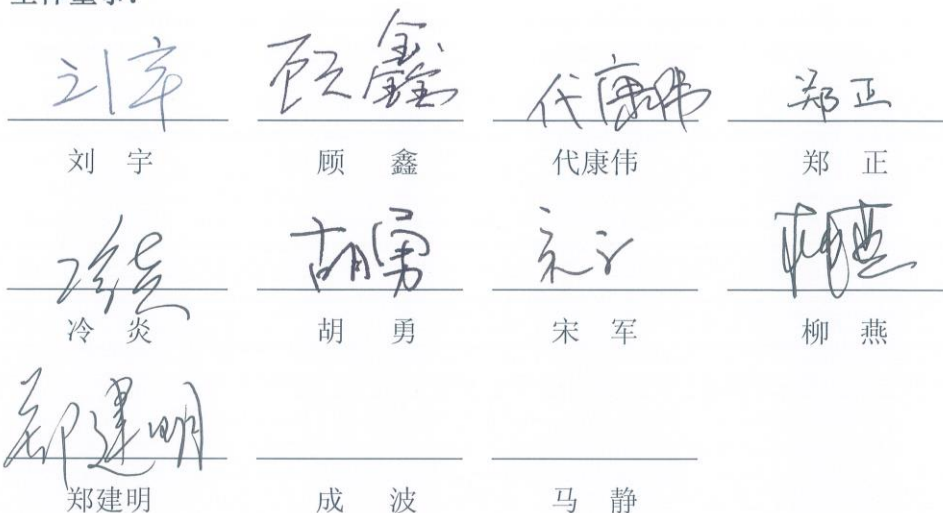 刘宇 顾鑫 代康伟 郑正
刘 宇 顾 鑫 代康伟 郑 正
冷炎 胡勇 宋军 柳燕
冷 炎 胡 勇 宋 军 柳 燕
郑建明
郑建明 成 波 马 静